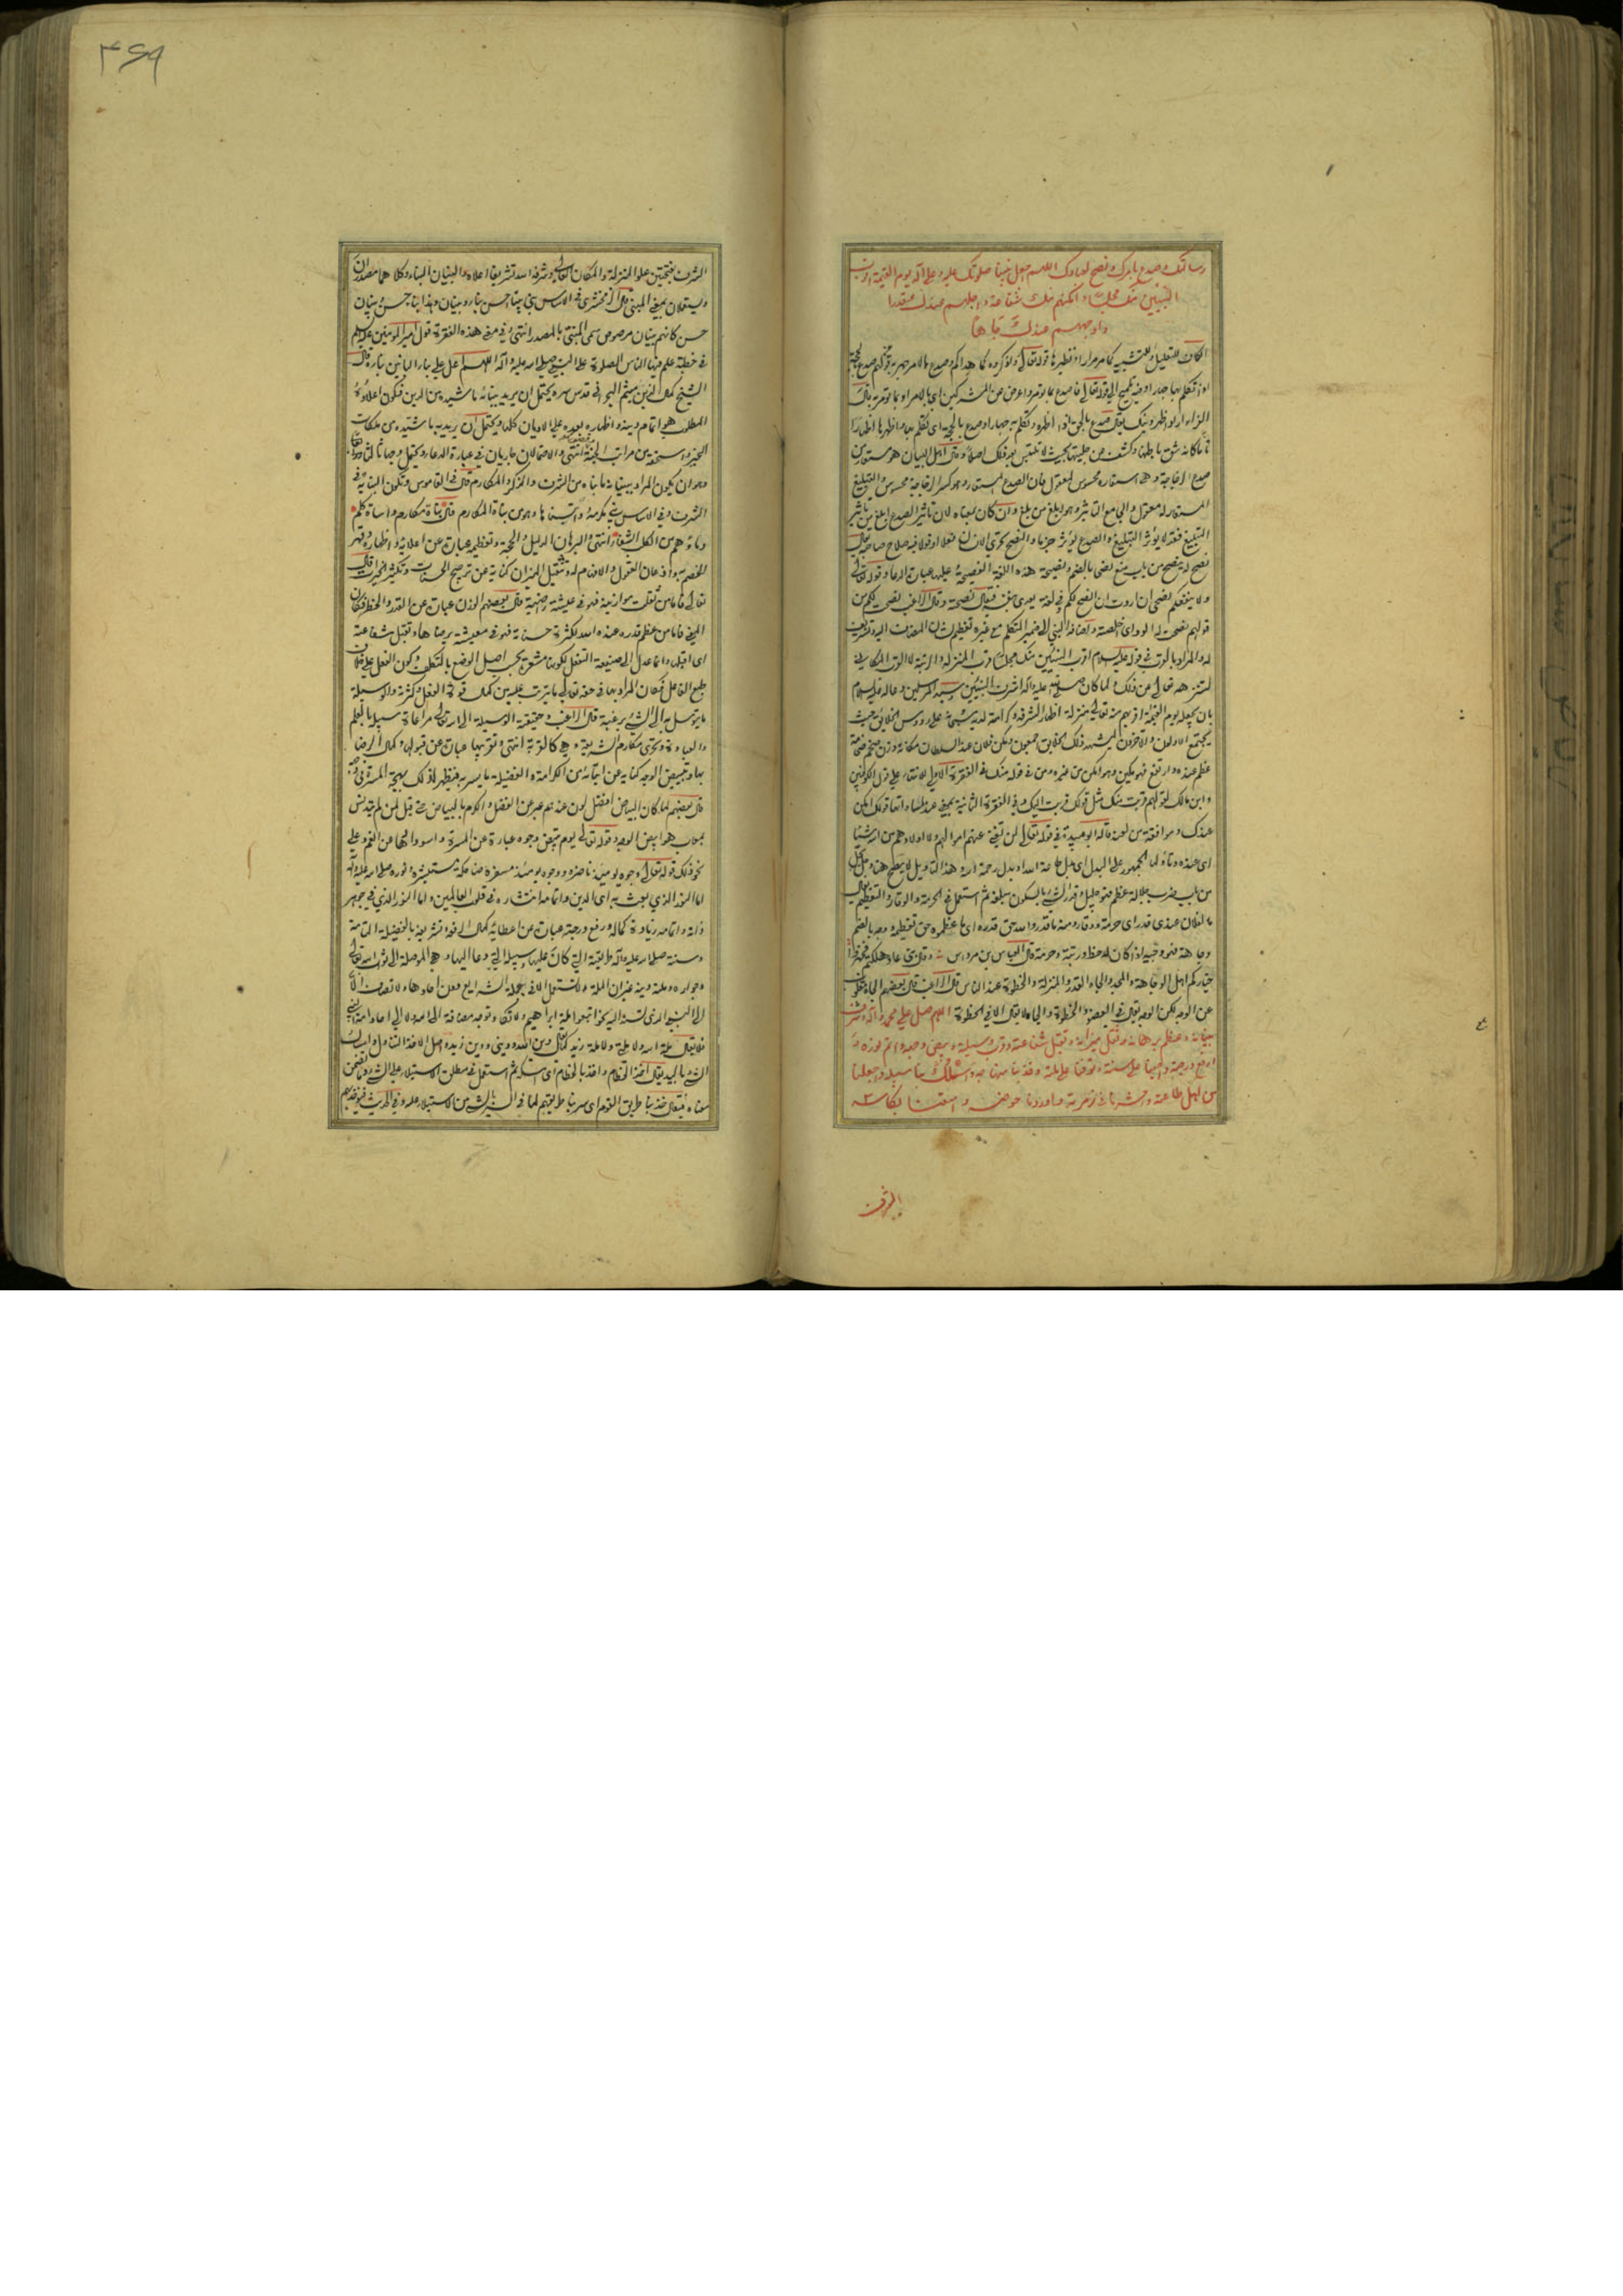 رسالتك وصدع بامرك ونصح لعبادك اللهم اجعل نبينا صلوتك عليه وعلى اله يوم القيمة اقرب
النبيين منك مجلسا وامكنهم منك شفاعة واجلهم عندك قدرا
واوجههم عندك جاها
الكاف للتعليل او للتشبيه كما مر مرارا ونظيرها قوله تعالى واذكروه كما هداكم وصدع بالامر جهر به من قولهم صدع بالحجة
اذا تكلم بها جهارا وفيه تلميح الى قوله تعالى فاصدع بما تؤمر واعرض عن المشركين اي بالامر او بما تؤمر به قال
الفراء اراد اظهر دينك يقال صدع بالحق اذا اظهره وتكلم به جهارا وصدع بالحجة اي تكلم بها واظهرها اظهارا
صدع الزجاجة وهي استعارة محسوس لمعقول فان الصدع المستعار وهو كسر الزجاجة محسوس والتبليغ
المستعار له معقول والجامع التاثير وهو ابلغ من بلغ وان كان بمعناه لان تاثير الصدع ابلغ من تاثير
التبليغ فقد لا يؤثر التبليغ والصدع يؤثر جزما والنصح تحري الانسان فعلا او قولا فيه صلاح صاحبه يقال
نصح له ينصح من باب منع نصحا بالضم ونصيحة هذه اللغة الفصيحة وعليها عبارة الدعاء وقوله تعالى
ولا ينفعكم نصحي ان اردت ان انصح لكم وفي لغة يعدى بنفسه فيقال نصحته وقال الراغب نصحت لكم من
قولهم نصحت له الود اي اخلصته واضافة النبي الى ضمير المتكلم مع غيره لتعظيم شان المضاف اليه وتشريف
له والمراد بالقرب في قوله عليه السلام اقرب النبيين منك مجلسا قرب المنزلة والرتبة لا القرب المكاني
لتنزهه تعالى عن ذلك ولما كان صلى الله عليه واله اشرف النبيين وسيد المرسلين دعا له عليه السلام
بان يجعله يوم القيمة اقربهم منه تعالى منزلة اظهارا لشرفه وكرامته لديه سبحانه على رؤس الخلائق حيث
يجتمع الاولون والاخرون ليشهد ذلك الخلائق اجمعون ومكن فلان عند السلطان مكانة وزان ضخم ضخامة
عظم عنده وارتفع فهو مكين وهو امكن من غيره ومن في قوله منك في الفقرة الاولى لانتهاء الغاية على قول الكوفيين
وابن مالك لقولهم قربت منك مثل قولك قربت اليك وفي الفقرة الثانية بمعنى عند
عندك وموافقة من لعند قاله ابو عبيدة في قوله تعالى لن تغني عنهم اموالهم ولا اولادهم من الله شيئا
اي عنده وتاوله الجمهور على البدل اي بدل طاعة الله او بدل رحمة الله وهذا التاويل لا يصح هنا وجل يجل
من باب ضرب جلالة عظم فهو جليل وقدر الشيء بالسكون مبلغه ثم استعمل في الحرمة والوقار والتعظيم يقال
ما لفلان عندي قدر اي حرمة ووقار ومنه ما قدروا الله حق قدره اي ما عظموه حق تعظيمه ووجه بالضم
وجاهة فهو وجيه اذا كان له حظ ورتبة وحرمة قال العباس بن مرداس
خياركم اهل الوجاهة والمجد والجاه القدر والمنزلة والحظوة عند الناس قال الراغب قال بعضهم الجاه مقلوب
عن الوجه لكن الوجه يقال في العضو والحظوة والجاه لا يقال الا في الحظوة اللهم صل على محمد واله وشرف
بنيانه وعظم برهانه وثقل ميزانه وتقبل شفاعته وقرب وسيلته وبيض وجهه واتم نوره و
ارفع درجته واحينا على سنته وتوفنا على ملته وخذ بنا منهاجه واسلك بنا سبيله واجعلنا
من اهل طاعته واحشرنا في زمرته واوردنا حوضه واسقنا بكاسه
الشرف
٤٦٩
الشرف بفتحتين علو المنزلة والمكان العالي وشرفه الله تشريفا اعلاه والبنيان البناء وكلاهما مصدران
ويستعملان بمعنى المبني قال الزمخشري في الاساس بنى بيتا احسن بناء وبنيان وهذا بناء حسن وبنيان
حسن كانهم بنيان مرصوص سمي المبني بالمصدر انتهى وفي معنى هذه الفقرة قول امير المؤمنين عليه السلم
في خطبة علم فيها الناس الصلوة على النبي صلى الله عليه واله اللهم اعل على بناء البانين بناءه قال
الشيخ كمال الدين ميثم البحراني قدس سره يحتمل ان يريد ببنائه ما شيده من الدين فيكون اعلاؤه
المطلوب هو اتمام دينه واظهاره بعده على الاديان كلها ويحتمل ان يريد به ما شيده من ملكات
الخير واستحقه من مراتب الجنة انتهى والاحتمالان جاريان في عبارة الدعاء ويحتمل وجها ثالثا
وهو ان يكون المراد ببنيانه ما بناه من الشرف والذكر والمكارم قال في القاموس وتكون البناية في
الشرف وفي الاساس بنى مكرمة وابتناها وهو من بناة المكارم قال بناة مكارم واساة كلم
دماؤهم من الكلب الشفاء انتهى والبرهان الدليل والحجة وتعظيمه عبارة عن اعلائه واظهاره وقهر
الخصم به واذعان العقول والافهام له وتثقيل الميزان كناية عن ترجيح الحسنات وتكثير الخيرات قال
تعالى فاما من ثقلت موازينه فهو في عيشة راضية قال بعضهم الوزن عبارة عن القدر والخطر فكان
المعنى فاما من عظم قدره عند الله لكثرة حسناته فهو في معيشة يرضاها وتقبل شفاعته
اي اقبلها وانما عدل الى صيغة التفعل لكونها مشعرة بحسب اصل الوضع بالتكلف وكون الفعل على خلاف
طبع الفاعل فكان المراد بها في حقه تعالى ما يترتب عليه من كمال قوة الفعل وكثرته والوسيلة
ما يتوسل به الى الشيء برغبة قال الراغب وحقيقة الوسيلة الى الله تعالى مراعاة سبيله بالعلم
والعبادة وتحري مكارم الشريعة وهي كالقربة انتهى وتقريبها عبارة عن قبولها وكمال الرضا
بها وتبييض الوجه كناية عن ايتائه من الكرامة والفضيلة ما يسر به فيظهر لذلك بهجة المسرة في وجهه
قال بعضهم لما كان البياض افضل لون عندهم عبر عن الفضل والكرم بالبياض حتى قيل لمن لم يتدنس
بمعاب هو ابيض الوجه وقوله تعالى يوم تبيض وجوه عبارة عن المسرة واسودادها عن الغم وعلى
نحو ذلك قوله تعالى وجوه يومئذ ناضرة ووجوه يومئذ مسفرة ضاحكة مستبشرة ونوره صلى الله عليه واله
اما النور الذي بعث به اي الدين واتمامه انتشاره في قلوب العالمين واما النور الذي في جوهر
ذاته واتمامه زيادة كماله ورفع درجته عبارة عن اعطائه كمال الرفعة وتشريفه بالفضيلة التامة
وسنته صلى الله عليه واله طريقته التي كان عليها وسبيله التي دعا اليها وهي الموصلة الى ثواب الله تعالى
وجواره وملته دينه غير ان الملة لا تستعمل الا في جملة الشرائع دون احادها ولا تضاف الا
الى النبي الذي تسند اليه نحو اتبعوا ملة ابراهيم ولا تكاد توجد مضافة الى الله ولا الى احاد امة النبي
فلا يقال ملة الله ولا ملتي ولا ملة زيد كما يقال دين الله وديني ودين زيد واصل الاخذ التناول وامساك
الشيء باليد يقال اخذ الخطام واخذ بالخطام اي امسكه ثم استعمل في مطلق الاستيلاء على الشيء وتضمن
معناه فيقال خذ بنا طريق القوم اي سر بنا طريقهم لما في السير بالشيء من الاستيلاء عليه وفي الحديث